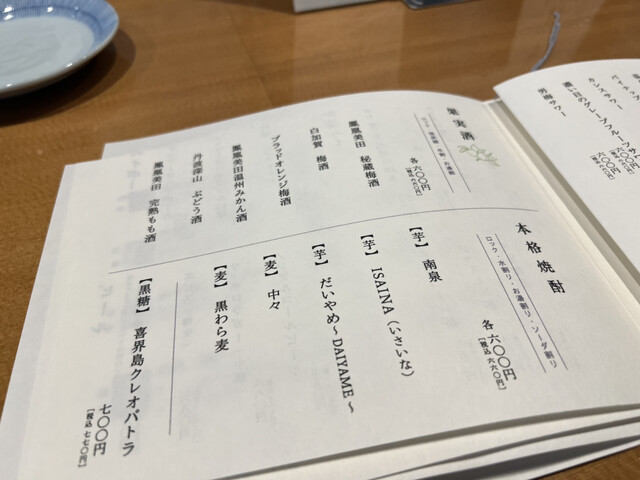 カンスサワー
濃い目のグレープフルーツサ
男梅サワー
果実酒
各六〇〇円
[税込六六〇円]
鳳凰美田 秘蔵梅酒
白加賀 梅酒
ブラッドオレンジ梅酒
鳳凰美田温州みかん酒
丹波深山 ぶどう酒
鳳凰美田 完熟もも酒
本格焼酎
ロック・水割り・お湯割り・ソーダ割り
各六〇〇円
[税込六六〇円]
【芋】 南泉
【芋】 ISAINA（いさいな）
【芋】 だいやめ～DAIYAME～
【麦】 中々
【麦】 黒わら麦
【黒糖】 喜界島クレオパトラ
七〇〇円
[税込七七〇円]